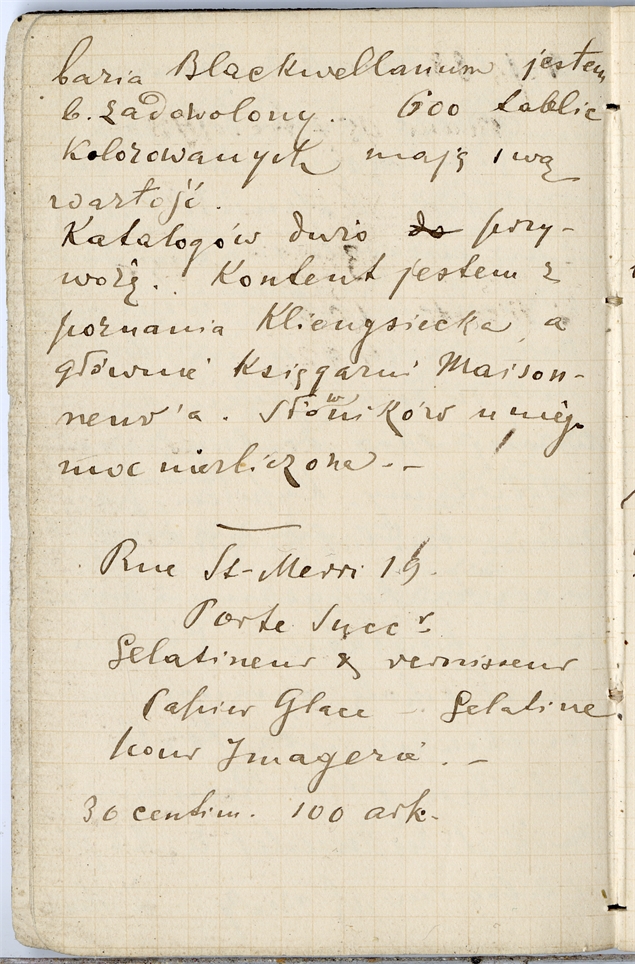 baria Blackwellianum jestem
b. zadowolony. 600 tablic
kolorowanych mają swą
wartość.
Katalogów dużo do przy-
wożę. Kontent jestem z
poznania Kliengsiecka, a
głównie Księgarni Maison-
neuv'a. Słowników u niego
moc niezliczona. -
Rue St-Merri 19.
Porte Succr.
Gelatineur & vernisseur
Papier Glace - Gelatine.
pour Imagerie. -
30 centim. 100 ark.